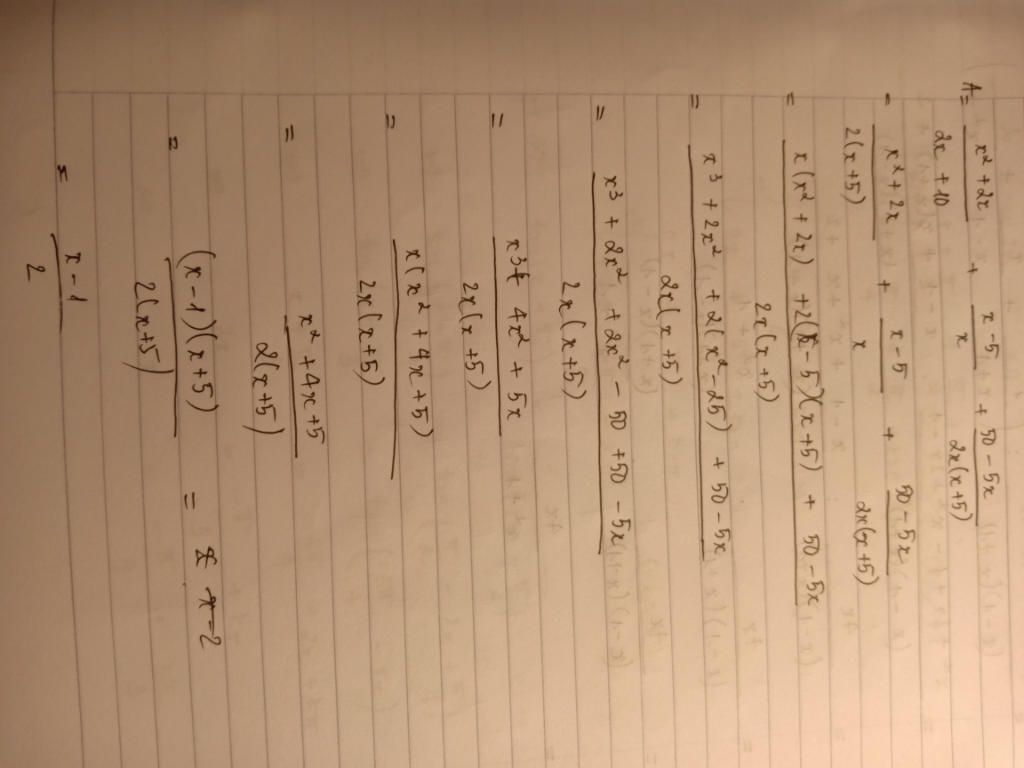 A = (x² + 2x)/(2x + 10) + (x - 5)/x + (50 - 5x)/(2x(x+5))
= (x² + 2x)/(2(x+5)) + (x - 5)/x + (50 - 5x)/(2x(x+5))
= (x(x² + 2x) + 2(x - 5)(x + 5) + 50 - 5x)/(2x(x+5))
= (x³ + 2x² + 2(x² - 25) + 50 - 5x)/(2x(x+5))
= (x³ + 2x² + 2x² - 50 + 50 - 5x)/(2x(x+5))
= (x³ + 4x² + 5x)/(2x(x+5))
= (x(x² + 4x + 5))/(2x(x+5))
= (x² + 4x + 5)/(2(x+5))
= ((x - 1)(x + 5))/(2(x+5)) = x - 2
= (x - 1)/2